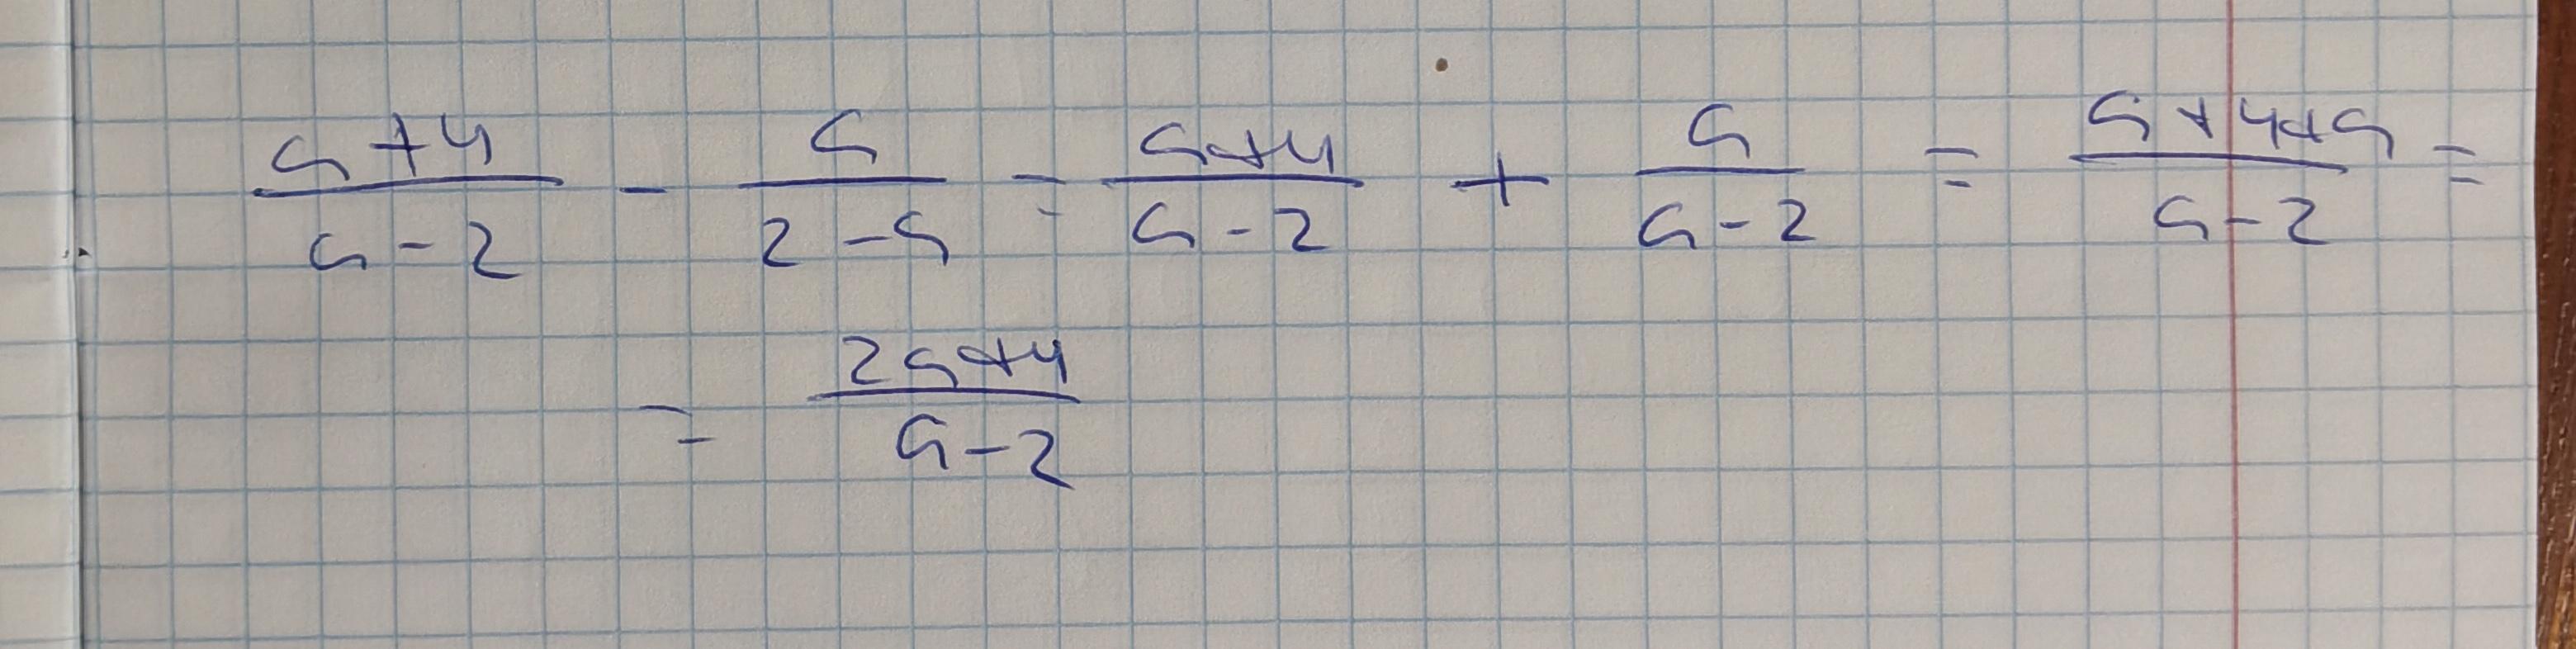 (a+4)/(a-2) - a/(2-a) = (a+4)/(a-2) + a/(a-2) = (a+4+a)/(a-2) =
= (2a+4)/(a-2)